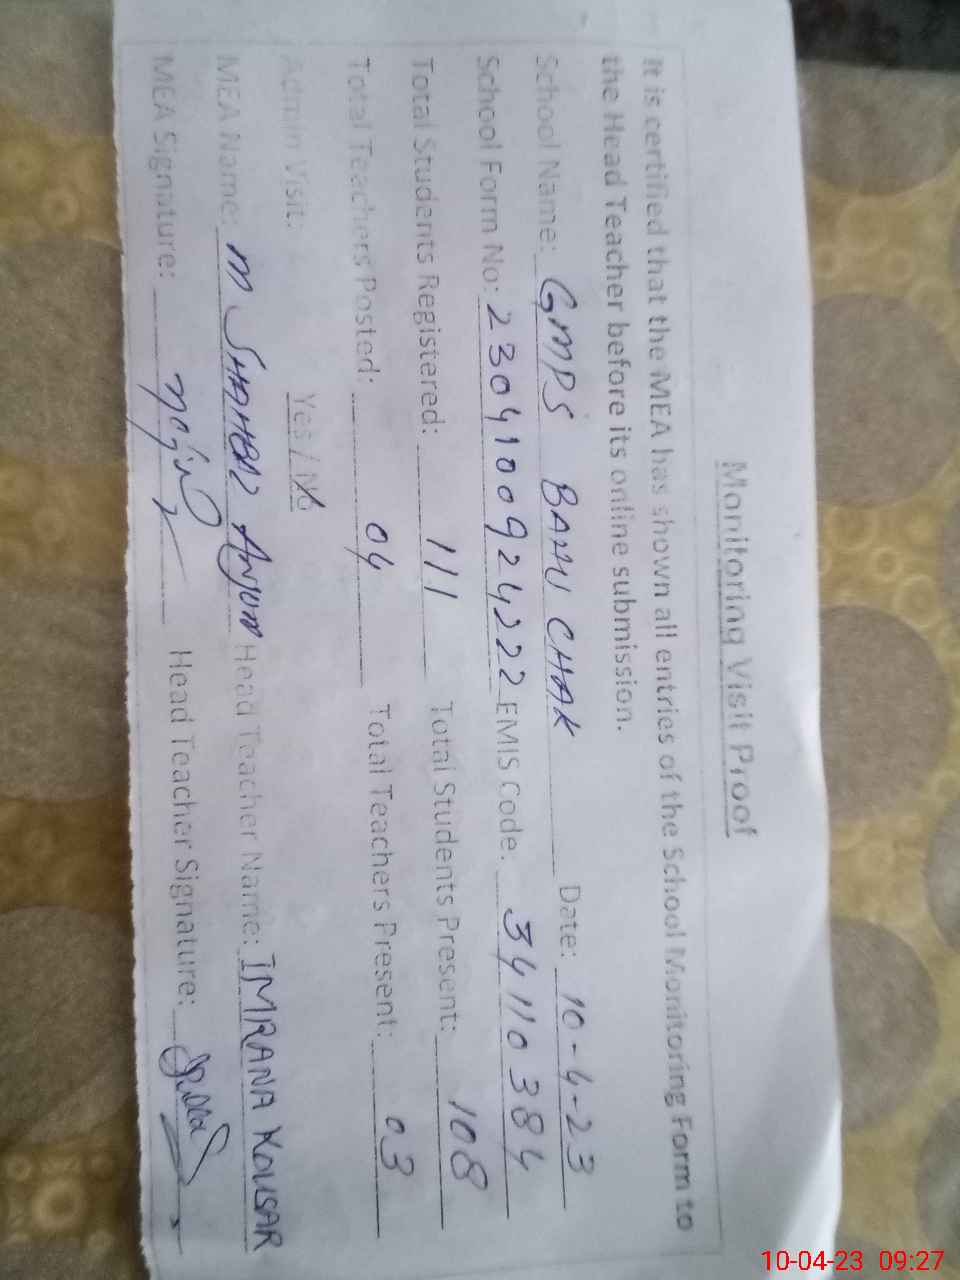 Monitoring Visit Proof
It is certified that the MEA has shown all entries of the School Monitoring Form to
the Head Teacher before its online submission.
School Name: GMPS BAHU CHAK Date: 10-4-23
School Form No: 2304100924222 EMIS Code: 34110384
Total Students Registered: 111 Total Students Present: 108
Total Teachers Posted: 04 Total Teachers Present: 03
Admin Visit: Yes / No
MEA Name: M SHAHBAZ Anjum Head Teacher Name: IMRANA KOUSAR
MEA Signature: Head Teacher Signature:
10-04-23 09:27